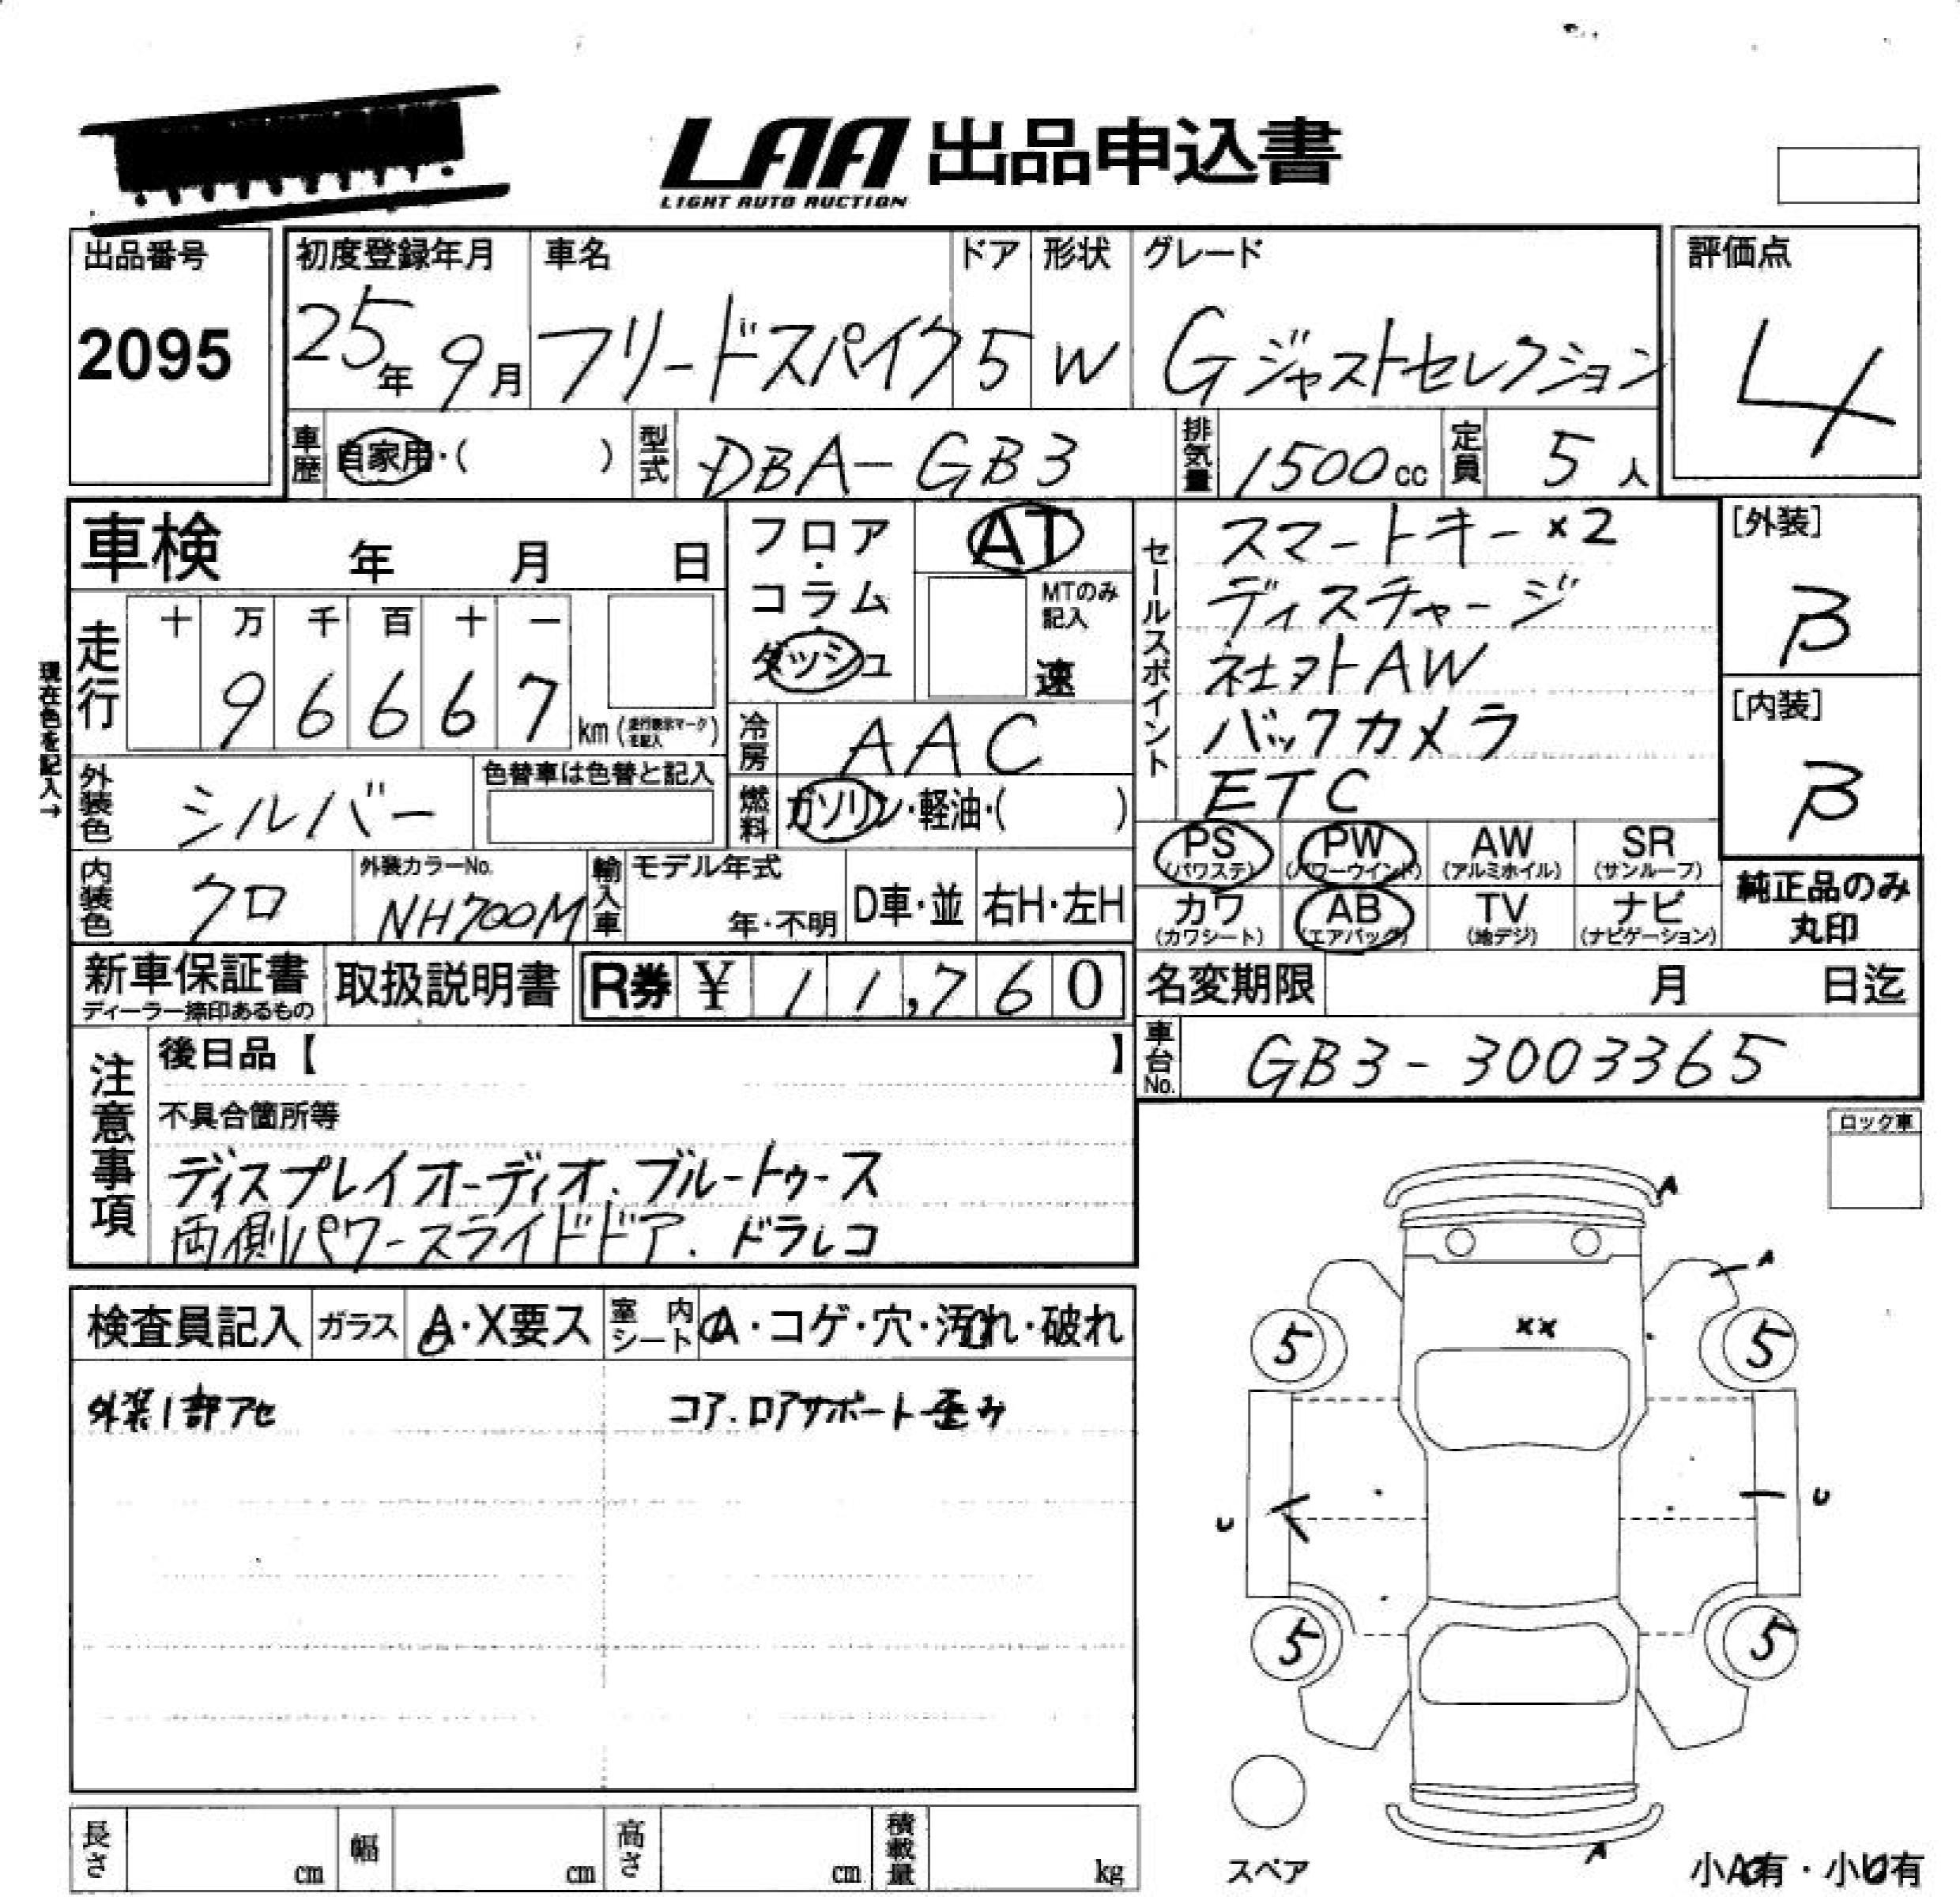 LAA 出品申込書
LIGHT AUTO AUCTION
出品番号
2095
初度登録年月
25年 9月
車名
フリードスパイク
ドア
5
形状
W
グレード
Gジャストセレクション
評価点
4
車歴
自家用・( )
型式
DBA-GB3
排気量
1500cc
定員
5人
車検 年 月 日
現在色を記入→
走行
十 万 千 百 十 一
9 6 6 6 7
km (走行表示マークを記入)
フロア・コラム・ダッシュ
AT
MTのみ記入
速
冷房
AAC
燃料
ガソリン・軽油・( )
外装色
シルバー
色替車は色替と記入
内装色
クロ
外装カラーNo.
NH700M
輸入車
モデル年式
年・不明
D車・並
右H・左H
セールスポイント
スマートキー×2
ディスチャージ
社外AW
バックカメラ
ETC
[外装]
B
[内装]
B
PS
(パワステ)
PW
(パワーウインド)
AW
(アルミホイル)
SR
(サンルーフ)
カワ
(カワシート)
AB
(エアバッグ)
TV
(地デジ)
ナビ
(ナビゲーション)
純正品のみ
丸印
新車保証書
ディーラー捺印あるもの
取扱説明書
R券 ¥ 11,760
名変期限 月 日迄
車台No.
GB3-3003365
注意事項
後日品【 】
不具合箇所等
ディスプレイオーディオ.ブルートゥース
両側パワースライドドア.ドラレコ
ロック車
検査員記入
ガラス
A・X要ス
室内シート
A・コゲ・穴・汚れ・破れ
外装1部アセ
コア.ロアサポート歪み
A
A
XX
5
5
U
U
5
5
A
スペア
小A有・小U有
長さ cm
幅 cm
高さ cm
積載量 kg